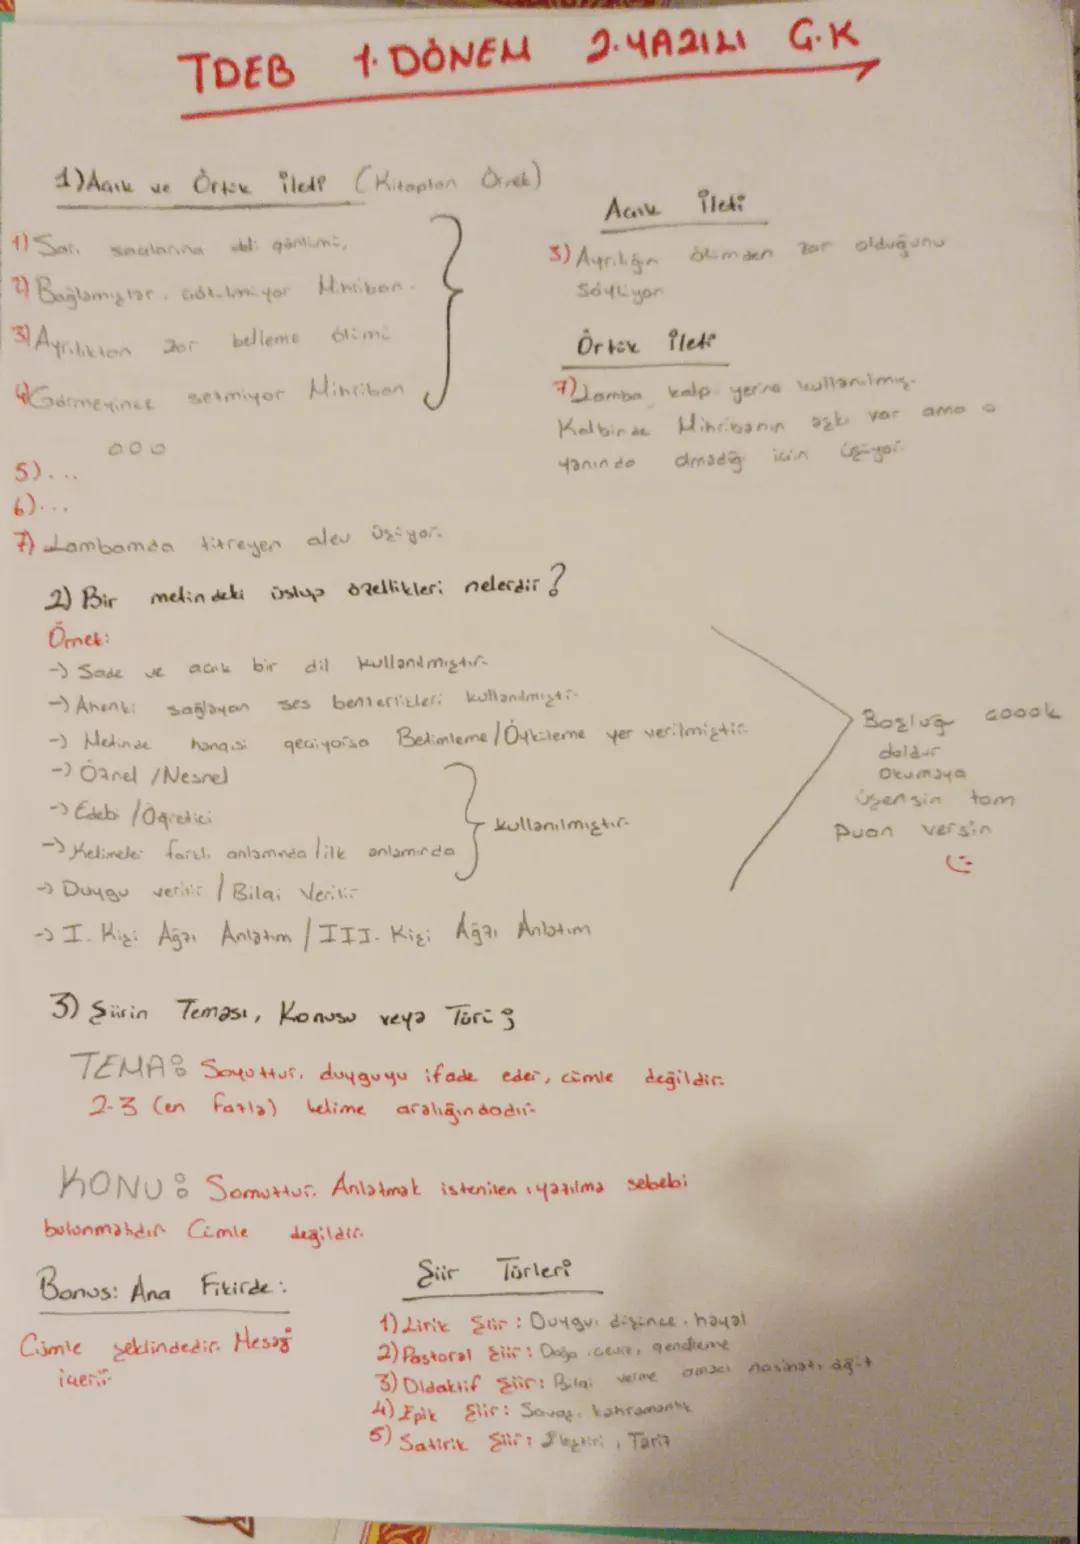 TDEB 1.DÖNEM 2.YAZILI G.K
1) Açık ve Örtük İleti (Kitaptan Örnek)
1) Sarı saçlarına deli gönlümü,
2) Bağlamışlar, çözülmüyor Mihriban.
3) Ayrılıktan zor belleme ölümü
4) Görmeyince sezmiyor Mihriban
ooo
5)...
6)...
7) Lambamda titreyen alev üşüyor.
Açık İleti
3) Ayrılığın ölümden zor olduğunu
söylüyor
Örtük İleti
7) Lamba kalp yerine kullanılmış.
Kalbinde Mihribanın aşkı var ama o
yanında olmadığı için üşüyor.
2) Bir metindeki üslup özellikleri nelerdir?
Örnek:
-> Sade ve açık bir dil kullanılmıştır.
-> Ahenki sağlayan ses benzerlikleri kullanılmıştır
-> Metinde hangisi geçiyorsa Betimleme/Öyküleme yer verilmiştir.
-> Öznel /Nesnel
-> Edebi /Öğretici
-> Kelimeler farklı anlamında/ilk anlamında
kullanılmıştır.
-> Duygu verilir / Bilgi Verilir
-> I. Kişi Ağzı Anlatım / III. Kişi Ağzı Anlatım
Boşluğu çoook
doldur
okumaya
üşensin tam
puan versin
(:
3) Şiirin Teması, Konusu veya Türü;
TEMA: Soyuttur, duyguyu ifade eder, cümle değildir.
2-3 (en fazla) kelime aralığındadır.
KONU: Somuttur. Anlatmak istenilen, yazılma sebebi
bulunmalıdır. Cümle değildir.
Bonus: Ana Fikirde:
Cümle şeklindedir. Mesajı
içerir.
Şiir Türleri
1) Lirik Şiir: Duygu, düşünce, hayal
2) Pastoral Şiir: Doğa, çevre,
3) Didaktif Şiir: Bilgi verme amacı nasihat, öğüt
4) Epik Şiir: Savaş, kahramanlık
5) Satirik Şiir: Eleştiri, Tariz